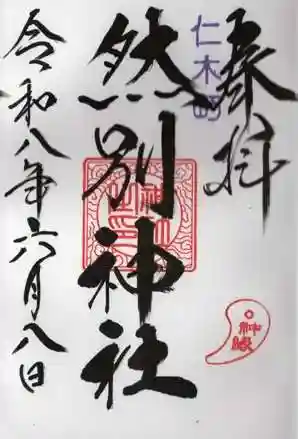 奉拝
仁木町
然別神社
令和八年六月八日
神縁